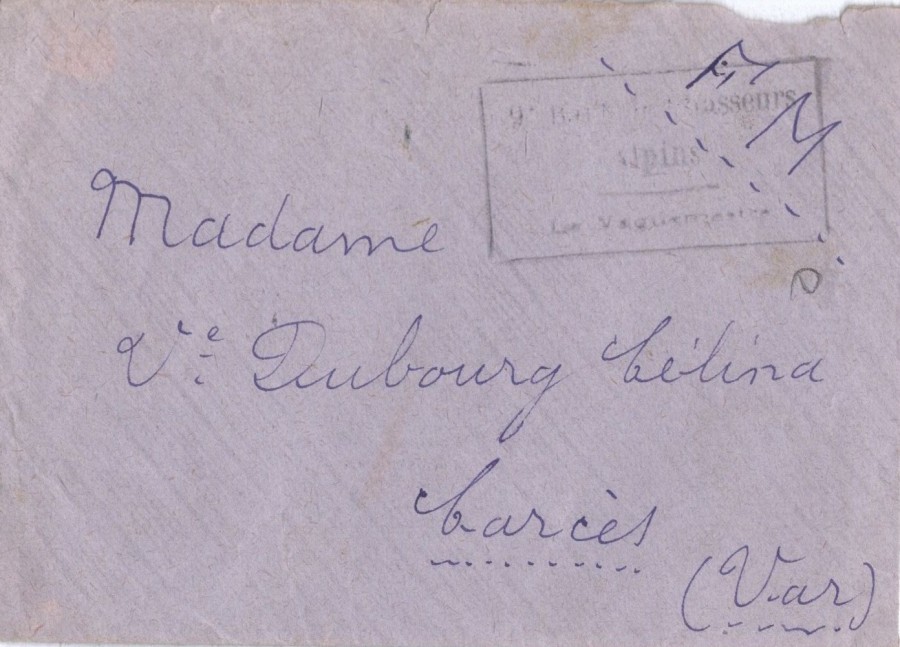 F. M
9e Bat. de Chasseurs
Alpins
Le Vaguemestre
Madame
Ve Dubourg Célina
Carcès
(Var)